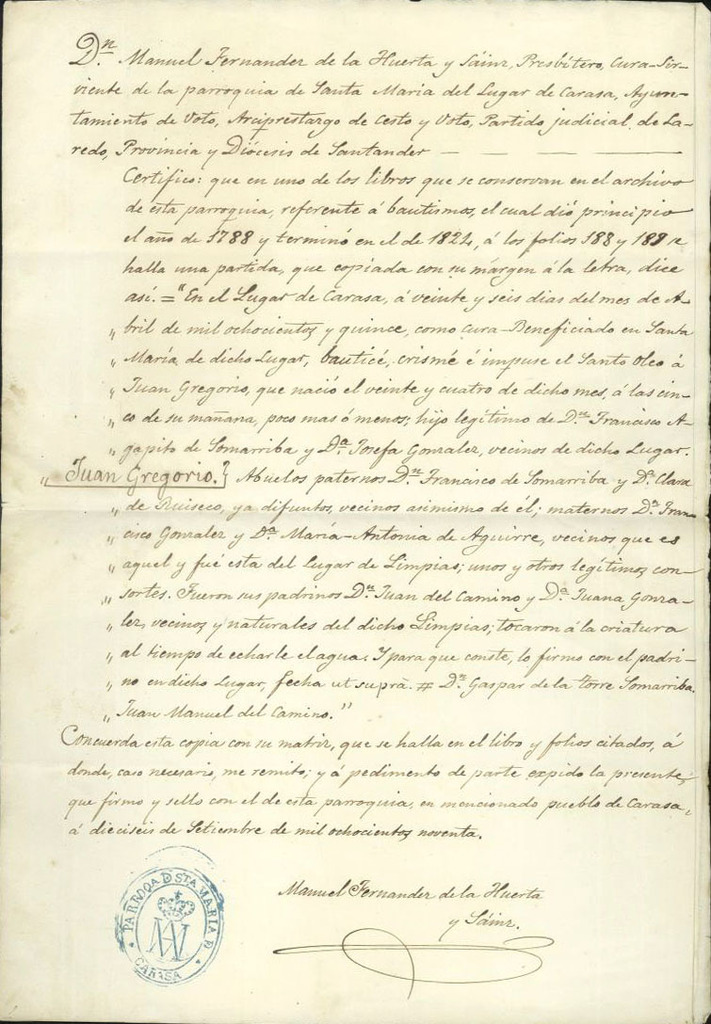 Dn. Manuel Fernandez de la Huerta y Sáinz, Presbítero, Cura-Sir-
viente de la parroquia de Santa Maria del Lugar de Carasa, Ayun-
tamiento de Voto, Arciprestazgo de Cesto y Voto, Partido judicial de La-
redo, Provincia y Diócesis de Santander —
Certifico: que en uno de los libros que se conservan en el archivo
de esta parroquia, referente á bautismos, el cual dió principio
el año de 1788 y terminó en el de 1824, á los folios 188 y 189 se
halla una partida, que copiada con su márgen á la letra, dice
así. = "En el Lugar de Carasa, á veinte y seis dias del mes de A-
" bril de mil ochocientos y quince, como Cura-Beneficiado en Santa
" María, de dicho Lugar, bauticé, crismé é impuse el Santo Oleo á
" Juan Gregorio, que nació el veinte y cuatro de dicho mes, á las cin-
" co de su mañana, poco mas ó menos; hijo legítimo de Dn. Francisco A-
" gapito de Somarriba y Da. Josefa Gonzalez, vecinos de dicho Lugar.
" Juan Gregorio.} Abuelos paternos Dn. Francisco de Somarriba y Da. Clara
" de Ruiseco, ya difuntos, vecinos asimismo de él; maternos Dn. Fran-
" cisco Gonzalez y Da. María-Antonia de Aguirre, vecinos que es
" aquel y fué esta del Lugar de Limpias; unos y otros legítimos con-
" sortes. Fueron sus padrinos Dn. Juan del Camino y Da. Juana Gonza-
" lez, vecinos y naturales del dicho Limpias; tocaron á la criatura
" al tiempo de echarle el agua. Y para que conste, lo firmo con el padri-
" no en dicho Lugar, fecha ut suprà. # Dn. Gaspar de la Torre Somarriba.
" Juan Manuel del Camino."
Concuerda esta copia con su matriz, que se halla en el libro y folios citados, á
donde, caso necesario, me remito; y á pedimento de parte expido la presente,
que firmo y sello con el de esta parroquia, en mencionado pueblo de Carasa,
á dieciseis de Setiembre de mil ochocientos noventa.
Manuel Fernandez de la Huerta
y Sáinz.
PARROQA D STA MARIA D
CARASA